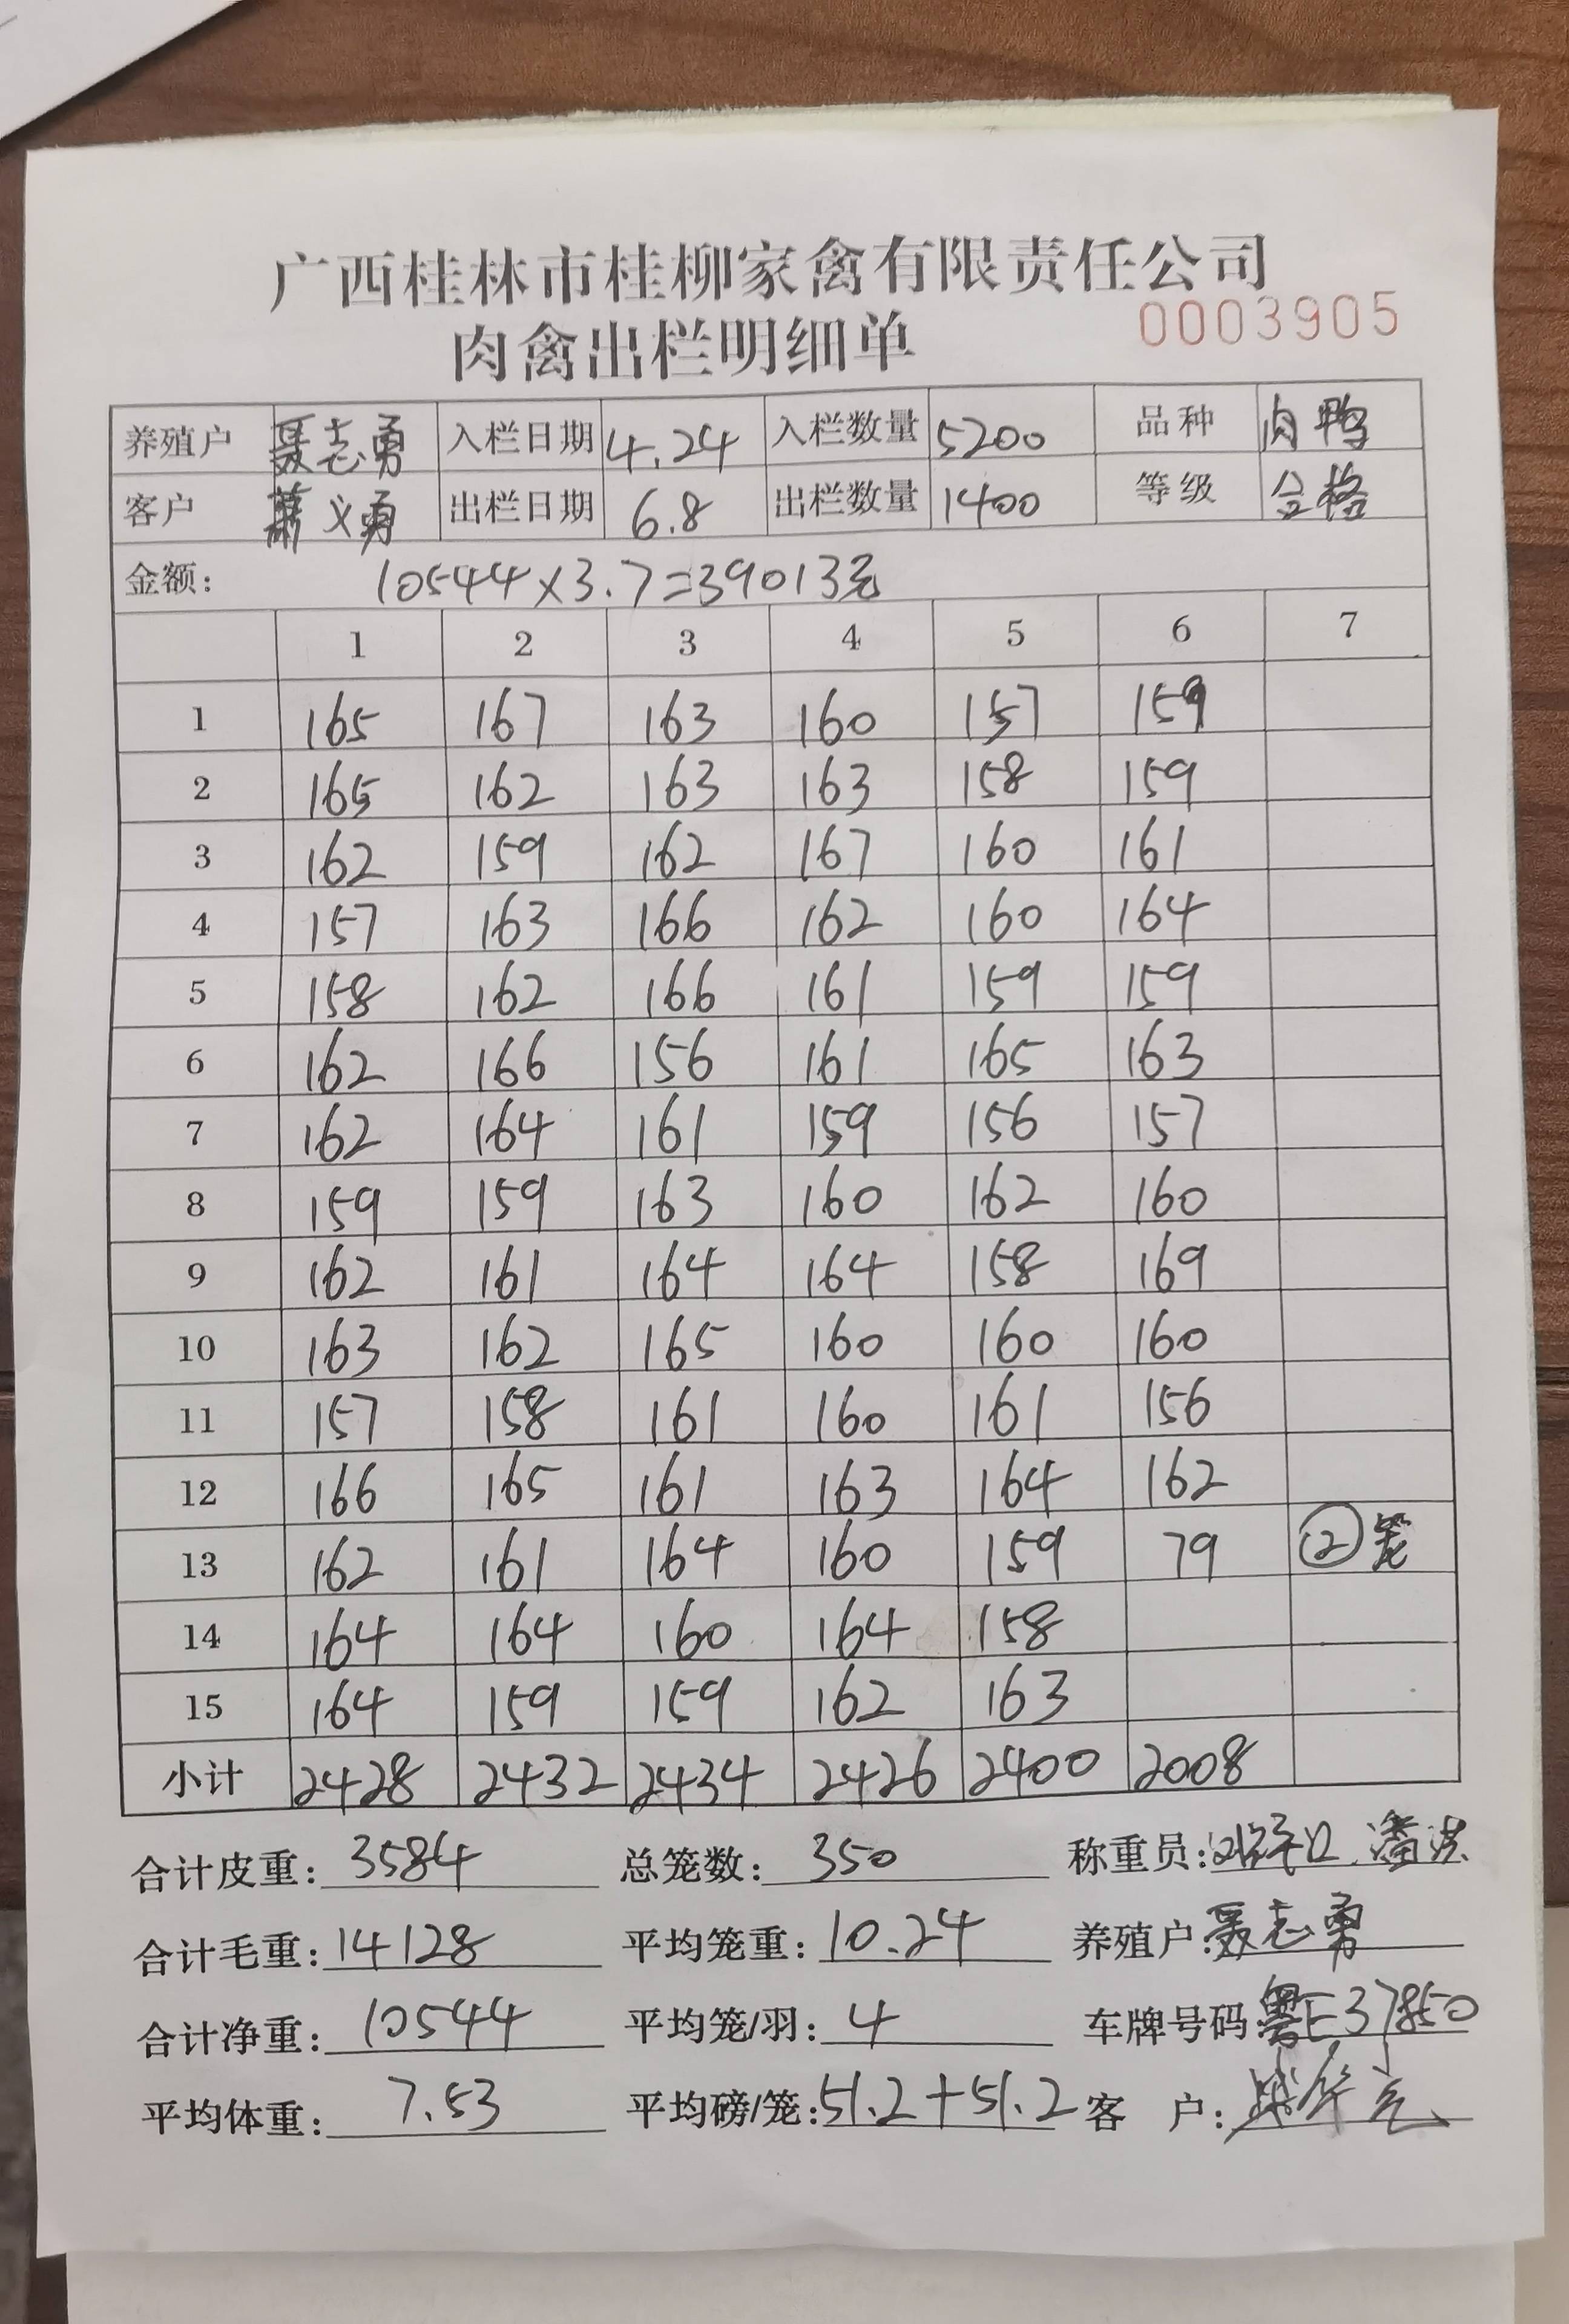 广西桂林市桂柳家禽有限责任公司
肉禽出栏明细单 0003905
养殖户 聂志勇 入栏日期 4.24 入栏数量 5200 品种 肉鸭
客户 义勇 出栏日期 6.8 出栏数量 1400 等级 合格
金额: 10544×3.7=39013元
1 2 3 4 5 6 7
1 165 167 163 160 157 159
2 165 162 163 163 158 159
3 162 159 162 167 160 161
4 157 163 166 162 160 164
5 158 162 166 161 159 159
6 162 166 156 161 165 163
7 162 164 161 159 156 157
8 159 159 163 160 162 160
9 162 161 164 164 158 169
10 163 162 165 160 160 160
11 157 158 161 160 161 156
12 166 165 161 163 164 162
13 162 161 164 160 159 79 ②笼
14 164 164 160 164 158
15 164 159 159 162 163
小计 2428 2432 2434 2426 2400 2008
合计皮重: 3584 总笼数: 350 称重员: 潘洪
合计毛重: 14128 平均笼重: 10.24 养殖户: 聂志勇
合计净重: 10544 平均笼/羽: 4 车牌号码: 粤E37850
平均体重: 7.53 平均磅/笼: 51.2+51.2 客 户: